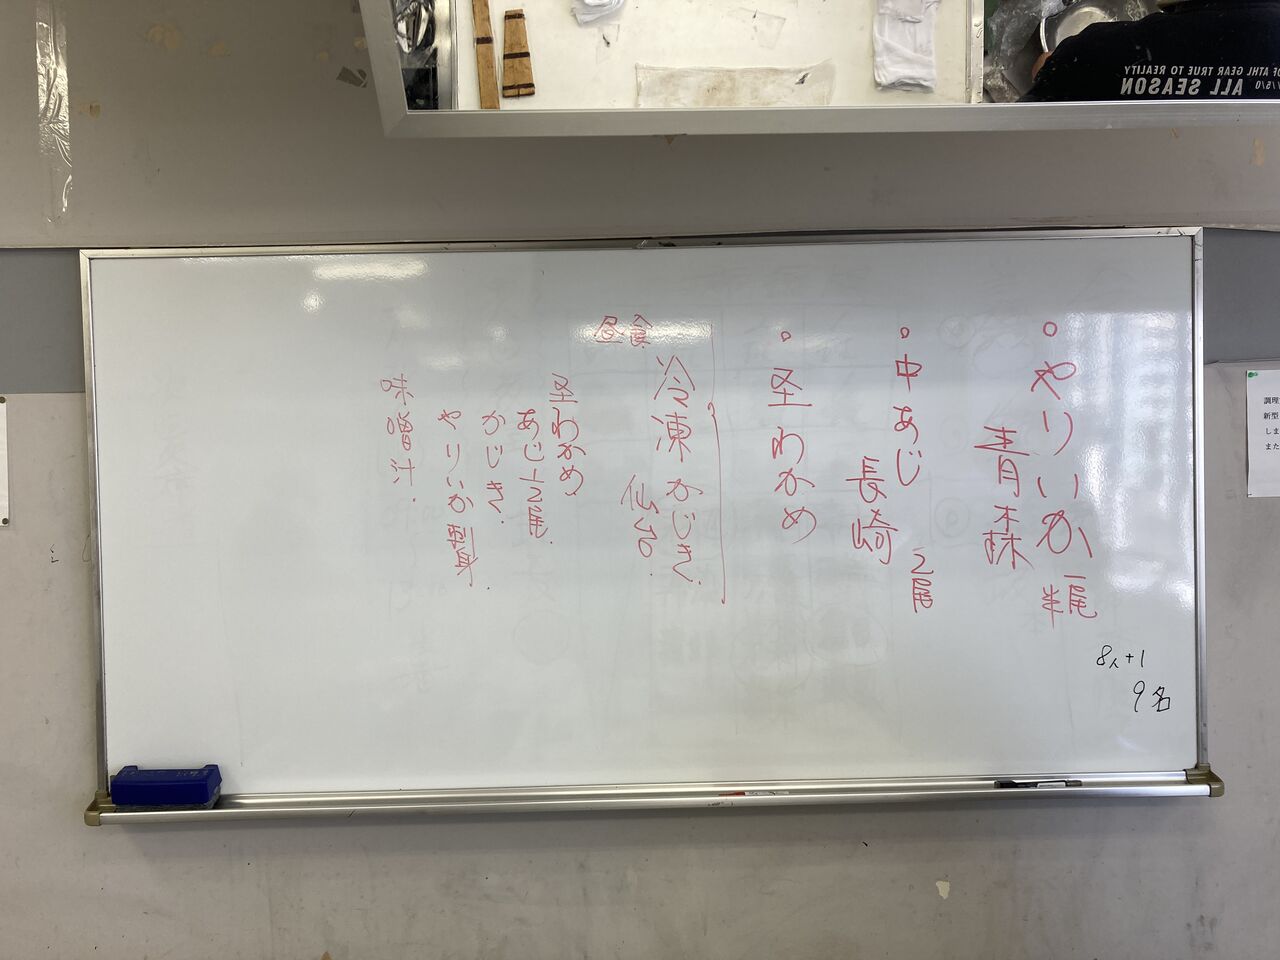 やりいか 一尾半
青森
中あじ 2尾
長崎
茎わかめ
昼食
冷凍かじき.
仙台.
茎わかめ.
あじ1/2尾.
かじき.
やりいか刺身.
味噌汁.
8人+1
9名
ALL SEASON
GEAR TRUE TO REALITY
調理
新型
しま
また